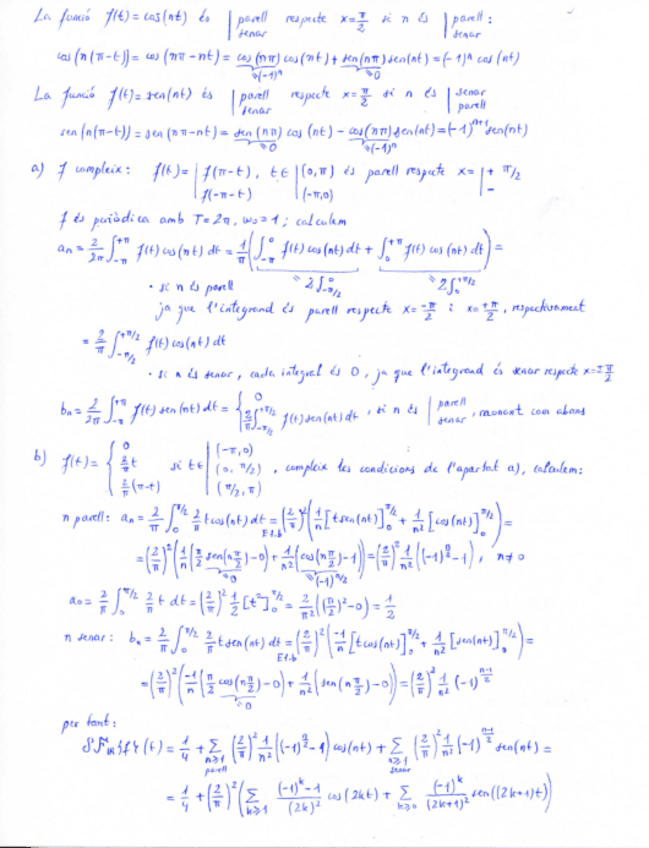 La funció f(t) = cos(nt) és | parell senar respecte x = π/2 si n és | parell: senar
cos(n(π-t)) = cos(nπ-nt) = cos(nπ) cos(nt) + sen(nπ) sen(nt) = (-1)^n cos(nt)
(-1)^n 0
La funció f(t) = sen(nt) és | parell senar respecte x = π/2 si n és | senar parell
sen(n(π-t)) = sen(nπ-nt) = sen(nπ) cos(nt) - cos(nπ) sen(nt) = (-1)^{n+1} sen(nt)
0 (-1)^n
a) f compleix: f(t) = | f(π-t) f(-π-t) , t∈ | (0,π) (-π,0) és parell respecte x = | + - π/2
f és periòdica amb T=2π, ω₀=1; calculem
aₙ = 2/2π ∫_{-π}^{+π} f(t) cos(nt) dt = 1/π ( ∫_{-π}^{0} f(t) cos(nt) dt + ∫_{0}^{+π} f(t) cos(nt) dt ) =
· si n és parell 2∫_{-π/2}^{0} 2∫_{0}^{+π/2}
ja que l'integrand és parell respecte x = -π/2 i x = +π/2, respectivament
= 2/π ∫_{-π/2}^{+π/2} f(t) cos(nt) dt
· si n és senar, cada integral és 0, ja que l'integrand és senar respecte x = ±π/2
bₙ = 2/2π ∫_{-π}^{+π} f(t) sen(nt) dt = { 0 2/π ∫_{-π/2}^{+π/2} f(t) sen(nt) dt , si n és | parell senar , raonant com abans
b) f(t) = { 0 2/π t 2/π (π-t) si t∈ | (-π,0) (0,π/2) (π/2,π) , compleix les condicions de l'apartat a), calculem:
n parell: aₙ = 2/π ∫_{0}^{π/2} 2/π t cos(nt) dt = (2/π)² ( 1/n [t sen(nt)]_{0}^{π/2} + 1/n² [cos(nt)]_{0}^{π/2} ) =
E1.b
= (2/π)² ( 1/n ( π/2 sen(nπ/2) - 0 ) + 1/n² ( cos(nπ/2) - 1 ) ) = (2/π)² 1/n² ( (-1)^{n/2} - 1 ) , n≠0
0 (-1)^{n/2}
a₀ = 2/π ∫_{0}^{π/2} 2/π t dt = (2/π)² 1/2 [t²]_{0}^{π/2} = 2/π² ( (π/2)² - 0 ) = 1/2
n senar: bₙ = 2/π ∫_{0}^{π/2} 2/π t sen(nt) dt = (2/π)² ( -1/n [t cos(nt)]_{0}^{π/2} + 1/n² [sen(nt)]_{0}^{π/2} ) =
E1.b
= (2/π)² ( -1/n ( π/2 cos(nπ/2) - 0 ) + 1/n² ( sen(nπ/2) - 0 ) ) = (2/π)² 1/n² (-1)^{(n-1)/2}
0
per tant:
SF_{IR}{f}(t) = 1/4 + Σ_{n≥1 parell} (2/π)² 1/n² ( (-1)^{n/2} - 1 ) cos(nt) + Σ_{n≥1 senar} (2/π)² 1/n² (-1)^{(n-1)/2} sen(nt) =
= 1/4 + (2/π)² ( Σ_{k≥1} ((-1)^k - 1)/(2k)² cos(2kt) + Σ_{k≥0} (-1)^k/(2k+1)² sen((2k+1)t) )